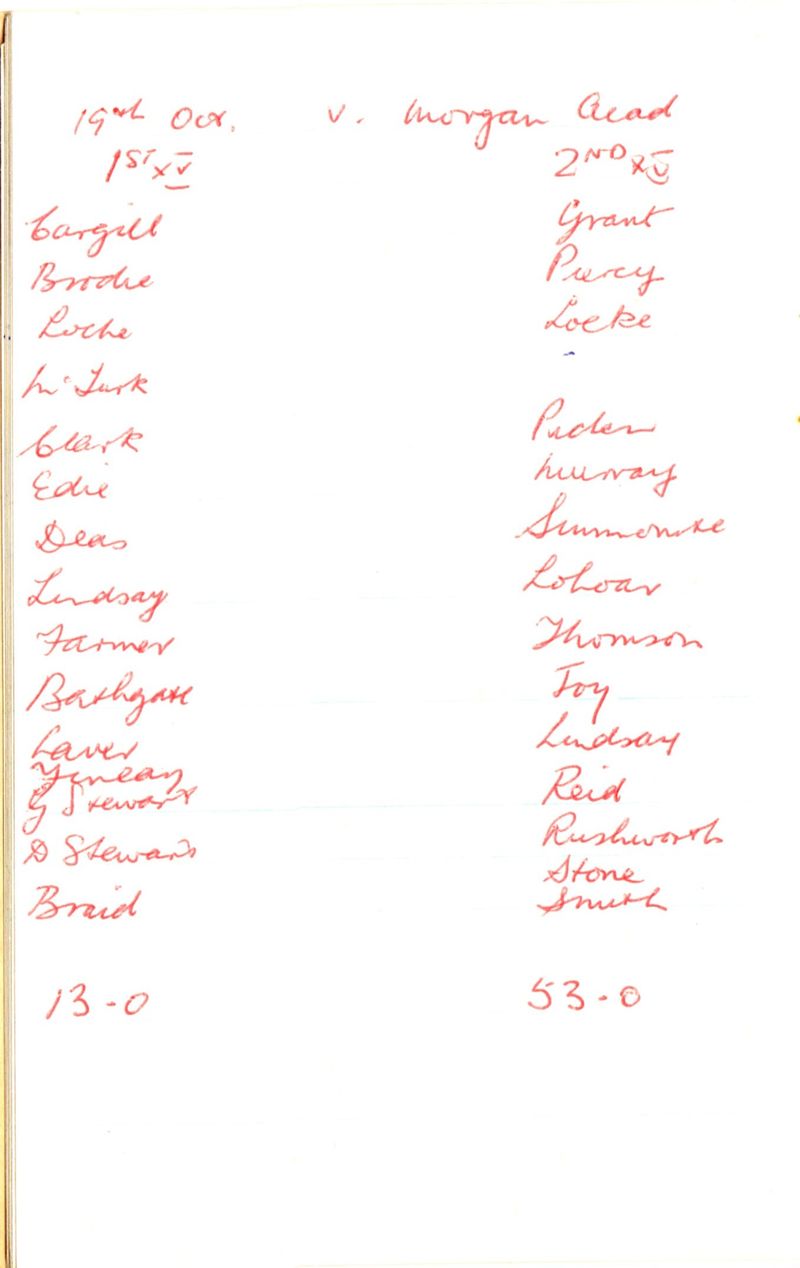 19th Oct. v. Morgan Acad
1ST XV 2ND XV
Cargill Grant
Brodie Piercy
Roche Locke
McTurk
Clark Peden
Edie Murray
Deas Simmonite
Lindsay Lohoar
Farmer Thomson
Bathgate Joy
Laver Lindsay
Finlay
G Stewart Reid
D Stewart Rushworth
Stone
Braid Smith
13-0 53-0